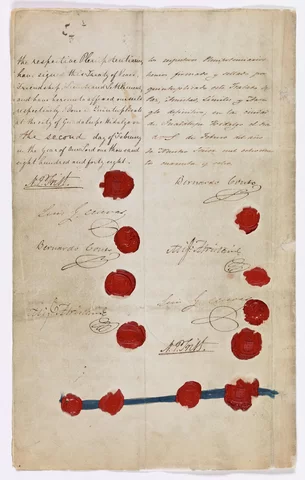 the respective Plenipotentiaries
have signed this Treaty of Peace,
Friendship, Limits and Settlement,
and have hereunto affixed our seals
respectively. Done in Quintuplicate
at the city of Guadalupe Hidalgo on
the second day of February
in the year of Our Lord one thousand
eight hundred and forty eight.
N. P. Trist.
Luis G. Cuevas
Bernardo Couto
Migl. Atristain
los respectivos Plenipotenciarios
hemos firmado y sellado por
quintuplicado este Tratado de
Paz, Amistad, Límites y Arre-
glo definitivo, en la ciudad
de Guadalupe Hidalgo el dia
de Febrero del año
de Nuestro Señor mil ochocientos
cuarenta y ocho.
Bernardo Couto
Migl. Atristain
Luis G. Cuevas
N. P. Trist.